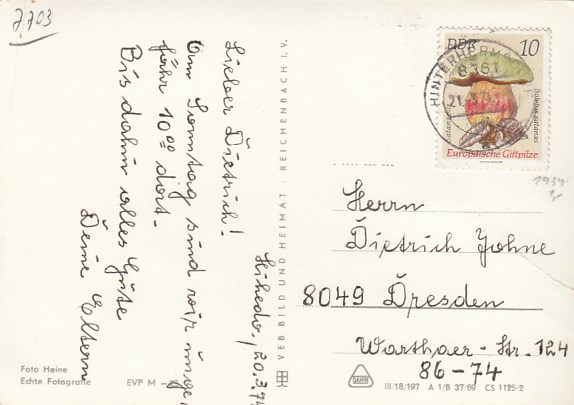 7.703
Lieber Dietrich!
Am Sonntag sind wir unge-
fähr 10⁰⁰ dort.
Bis dahin alles Gute
Deine Eltern
20.3.74
VEB BILD UND HEIMAT · REICHENBACH I.V.
Foto Heine
Echte Fotografie
EVP M
DDR 10
Boletus satanas
Europäische Giftpilze
8361
1934
Herrn
Dietrich Johne
8049 Dresden
Warthaer-Str. 124
86-74
III 18/197 A 1/B 37/69 CS 1125/2